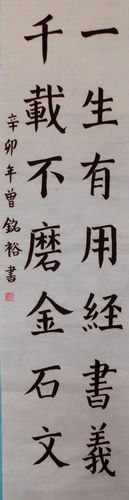 一生有用經書義
千載不磨金石文
辛卯年曾銘裕書